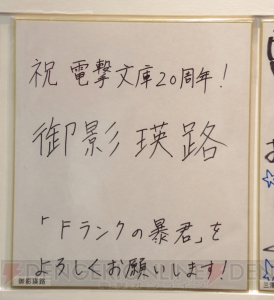 祝 電撃文庫20周年!
御影瑛路
「Fランクの暴君」を
よろしくお願いします!
御影瑛路